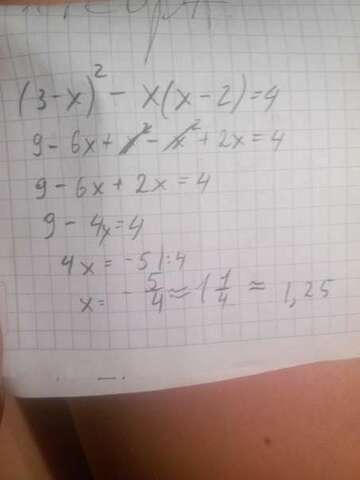 (3-x)² - x(x-2)=4
9-6x+x²-x²+2x=4
9-6x+2x=4
9-4x=4
4x=-5|:4
x=-5/4≈1 1/4≈1,25